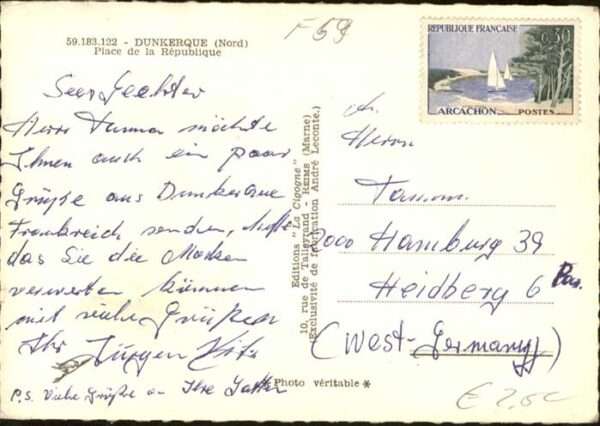 59.183.122 - DUNKERQUE (Nord)
Place de la République
F 59
RÉPUBLIQUE FRANÇAISE
0,30
ARCACHON POSTES
Seer Geehrter
Herr Tamm möchte
Ihnen auch ein paar
Grüße aus Dunkerque
Frankreich senden, hoffe
das Sie die Marken
verwerten können
mit viele Grüßen
Ihr Jürgen
P.S. Viele Grüße an Ihre
Editions "La Cigogne"
10, rue de Talleyrand REIMS (Marne)
(Exclusivité de fabrication André Leconte.)
* Photo véritable *
An
Herrn
Tamm
2000 Hamburg 39
Heidberg 6
(West-Germany)
€ 2,50